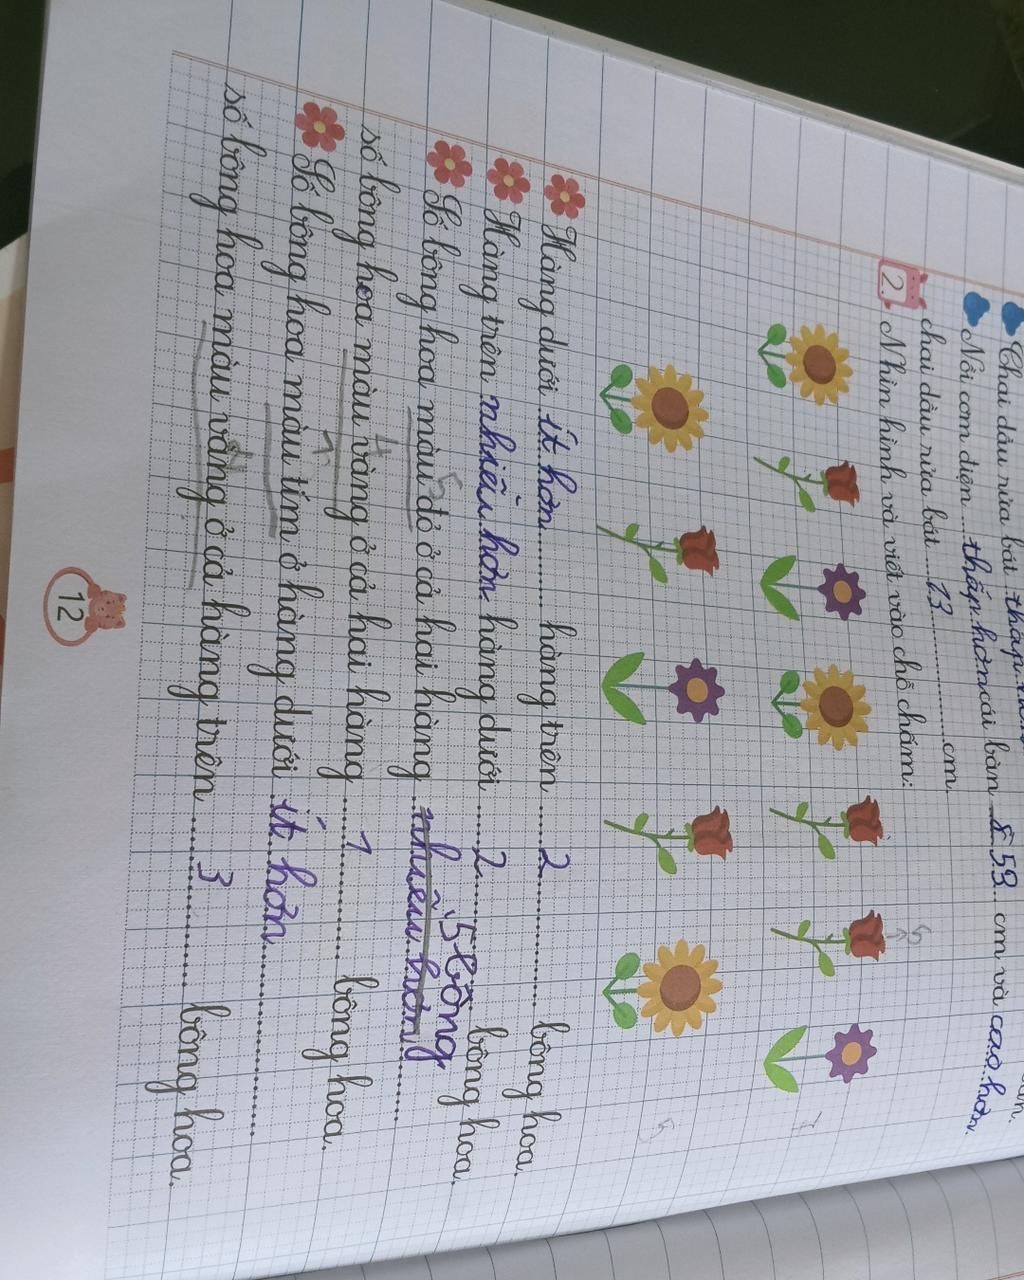 Chai dầu rửa bát thấp hơn
Nồi cơm điện ... thấp hơn cái bàn 59 cm và cao hơn
chai dầu rửa bát ... 13 ... cm.
2. Nhìn hình và viết vào chỗ chấm:
5
7
5
Hàng dưới ít hơn ... hàng trên ... 2 ... bông hoa.
Hàng trên nhiều hơn hàng dưới ... 2 ... bông hoa.
Số bông hoa màu đỏ ở cả hai hàng nhiều hơn 5 bông
số bông hoa màu vàng ở cả hai hàng ... 1 ... bông hoa.
Số bông hoa màu tím ở hàng dưới ít hơn
số bông hoa màu vàng ở cả hàng trên ... 3 ... bông hoa.
12